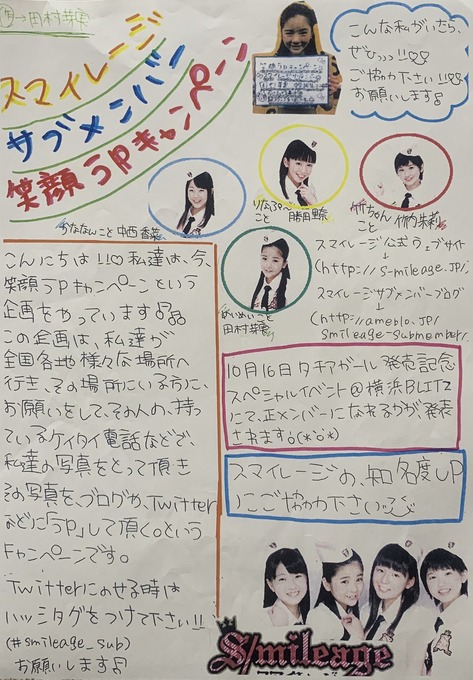 スマイレージ
サブメンバー
笑顔うpキャンペーン
こんな私がいたら、
ぜひっっ!!♡♡
ご協力下さい!!♡♡
お願いします♪
かななんこと 中西香菜
りなぷ〜
こと 勝田里奈
竹ちゃん
こと 竹内朱莉
めいめいこと
田村芽実
スマイレージ公式ウェブサイト
↓
(http://s-mileage.jp/
スマイレージサブメンバーブログ
↓
(http://ameblo.jp/
smileage-submember/
こんにちは!!♡私達は、今、
笑顔うpキャンペーンという
企画をやっています♪
この企画は、私達が
全国各地様々な場所へ
行き、その場所にいる方に、
お願いをして、その人の、持っ
ているケイタイ電話などで、
私達の写真をとって頂き
その写真を、ブログや、Twitter
などに「うp」して頂く。という
キャンペーンです。
Twitterにのせる時は
ハッシュタグをつけて下さい!!
(#smileage_sub)
お願いします♪
10月16日タチアガール発売記念
スペシャルイベント@横浜BLITZ
にて、正メンバーになれるかが、発表
されます。(*ö*)
スマイレージの、知名度UP
にご協力下さい。
S/mileage